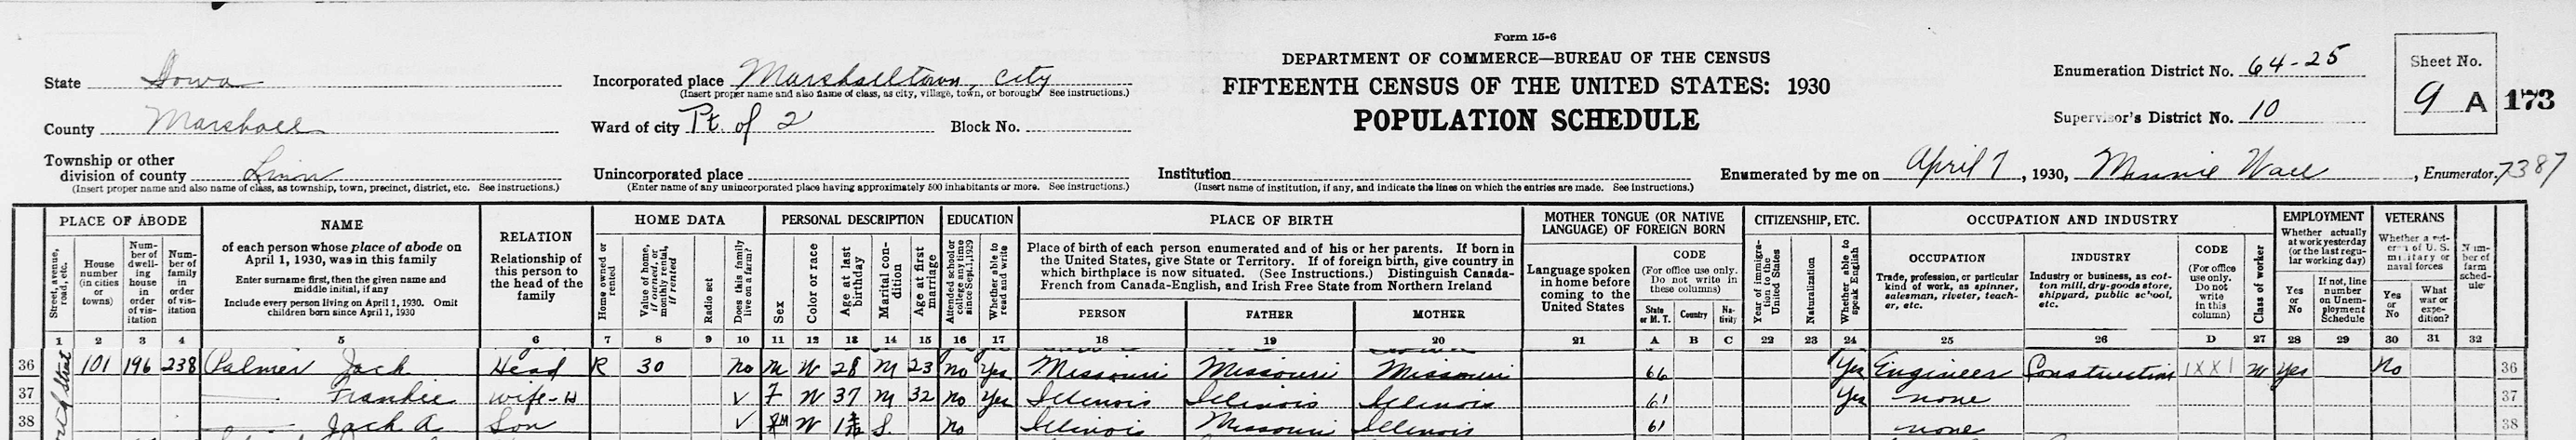 Form 15-6
DEPARTMENT OF COMMERCE—BUREAU OF THE CENSUS
FIFTEENTH CENSUS OF THE UNITED STATES: 1930
POPULATION SCHEDULE
State Iowa
County Marshall
Township or other
division of county Linn
(Insert proper name and also name of class, as township, town, precinct, district, etc. See instructions.)
Incorporated place Marshalltown, city
(Insert proper name and also name of class, as city, village, town, or borough. See instructions.)
Ward of city Pt. of 2 Block No.
Unincorporated place
(Enter name of any unincorporated place having approximately 500 inhabitants or more. See instructions.)
Institution
(Insert name of institution, if any, and indicate the lines on which the entries are made. See instructions.)
Enumeration District No. 64-25
Supervisor's District No. 10
Sheet No.
9 A
173
Enumerated by me on April 7, 1930, Minnie Wall, Enumerator. 7387
PLACE OF ABODE
Street, avenue, road, etc.
House number (in cities or towns)
Number of dwelling house in order of visitation
Number of family in order of visitation
NAME
of each person whose place of abode on
April 1, 1930, was in this family
Enter surname first, then the given name and
middle initial, if any
Include every person living on April 1, 1930. Omit
children born since April 1, 1930
RELATION
Relationship of
this person to
the head of the
family
HOME DATA
Home owned or rented
Value of home, if owned, or monthly rental, if rented
Radio set
Does this family live on a farm?
PERSONAL DESCRIPTION
Sex
Color or race
Age at last birthday
Marital condition
Age at first marriage
EDUCATION
Attended school or college any time since Sept. 1, 1929
Whether able to read and write
PLACE OF BIRTH
Place of birth of each person enumerated and of his or her parents. If born in
the United States, give State or Territory. If of foreign birth, give country in
which birthplace is now situated. (See Instructions.) Distinguish Canada-
French from Canada-English, and Irish Free State from Northern Ireland
PERSON FATHER MOTHER
MOTHER TONGUE (OR NATIVE
LANGUAGE) OF FOREIGN BORN
Language spoken
in home before
coming to the
United States
CODE
(For office use only.
Do not write in
these columns)
State or M. T. Country Nativity
CITIZENSHIP, ETC.
Year of immigration to the United States
Naturalization
Whether able to speak English
OCCUPATION AND INDUSTRY
OCCUPATION
Trade, profession, or particular
kind of work, as spinner,
salesman, riveter, teach-
er, etc.
INDUSTRY
Industry or business, as cot-
ton mill, dry-goods store,
shipyard, public school,
etc.
CODE
(For office
use only.
Do not
write
in this
column)
Class of worker
EMPLOYMENT
Whether actually
at work yesterday
(or the last regu-
lar working day)
Yes or No
If not, line number on Unemployment Schedule
VETERANS
Whether a vet-
eran of U. S.
military or
naval forces
Yes or No
What war or expedition?
Number of farm schedule
1 2 3 4 5 6 7 8 9 10 11 12 13 14 15 16 17 18 19 20 21 A B C 22 23 24 25 26 D 27 28 29 30 31 32
36 101 196 238 Palmer Jack Head R 30 no M W 28 M 23 no Yes Missouri Missouri Missouri 66 Yes Engineer Construction 1XX1 W Yes No 36
37 Frankie wife-H V F W 37 M 32 no Yes Illinois Illinois Illinois 61 Yes none 37
38 Jack A Son V M W S no Illinois Missouri Illinois 61 none 38